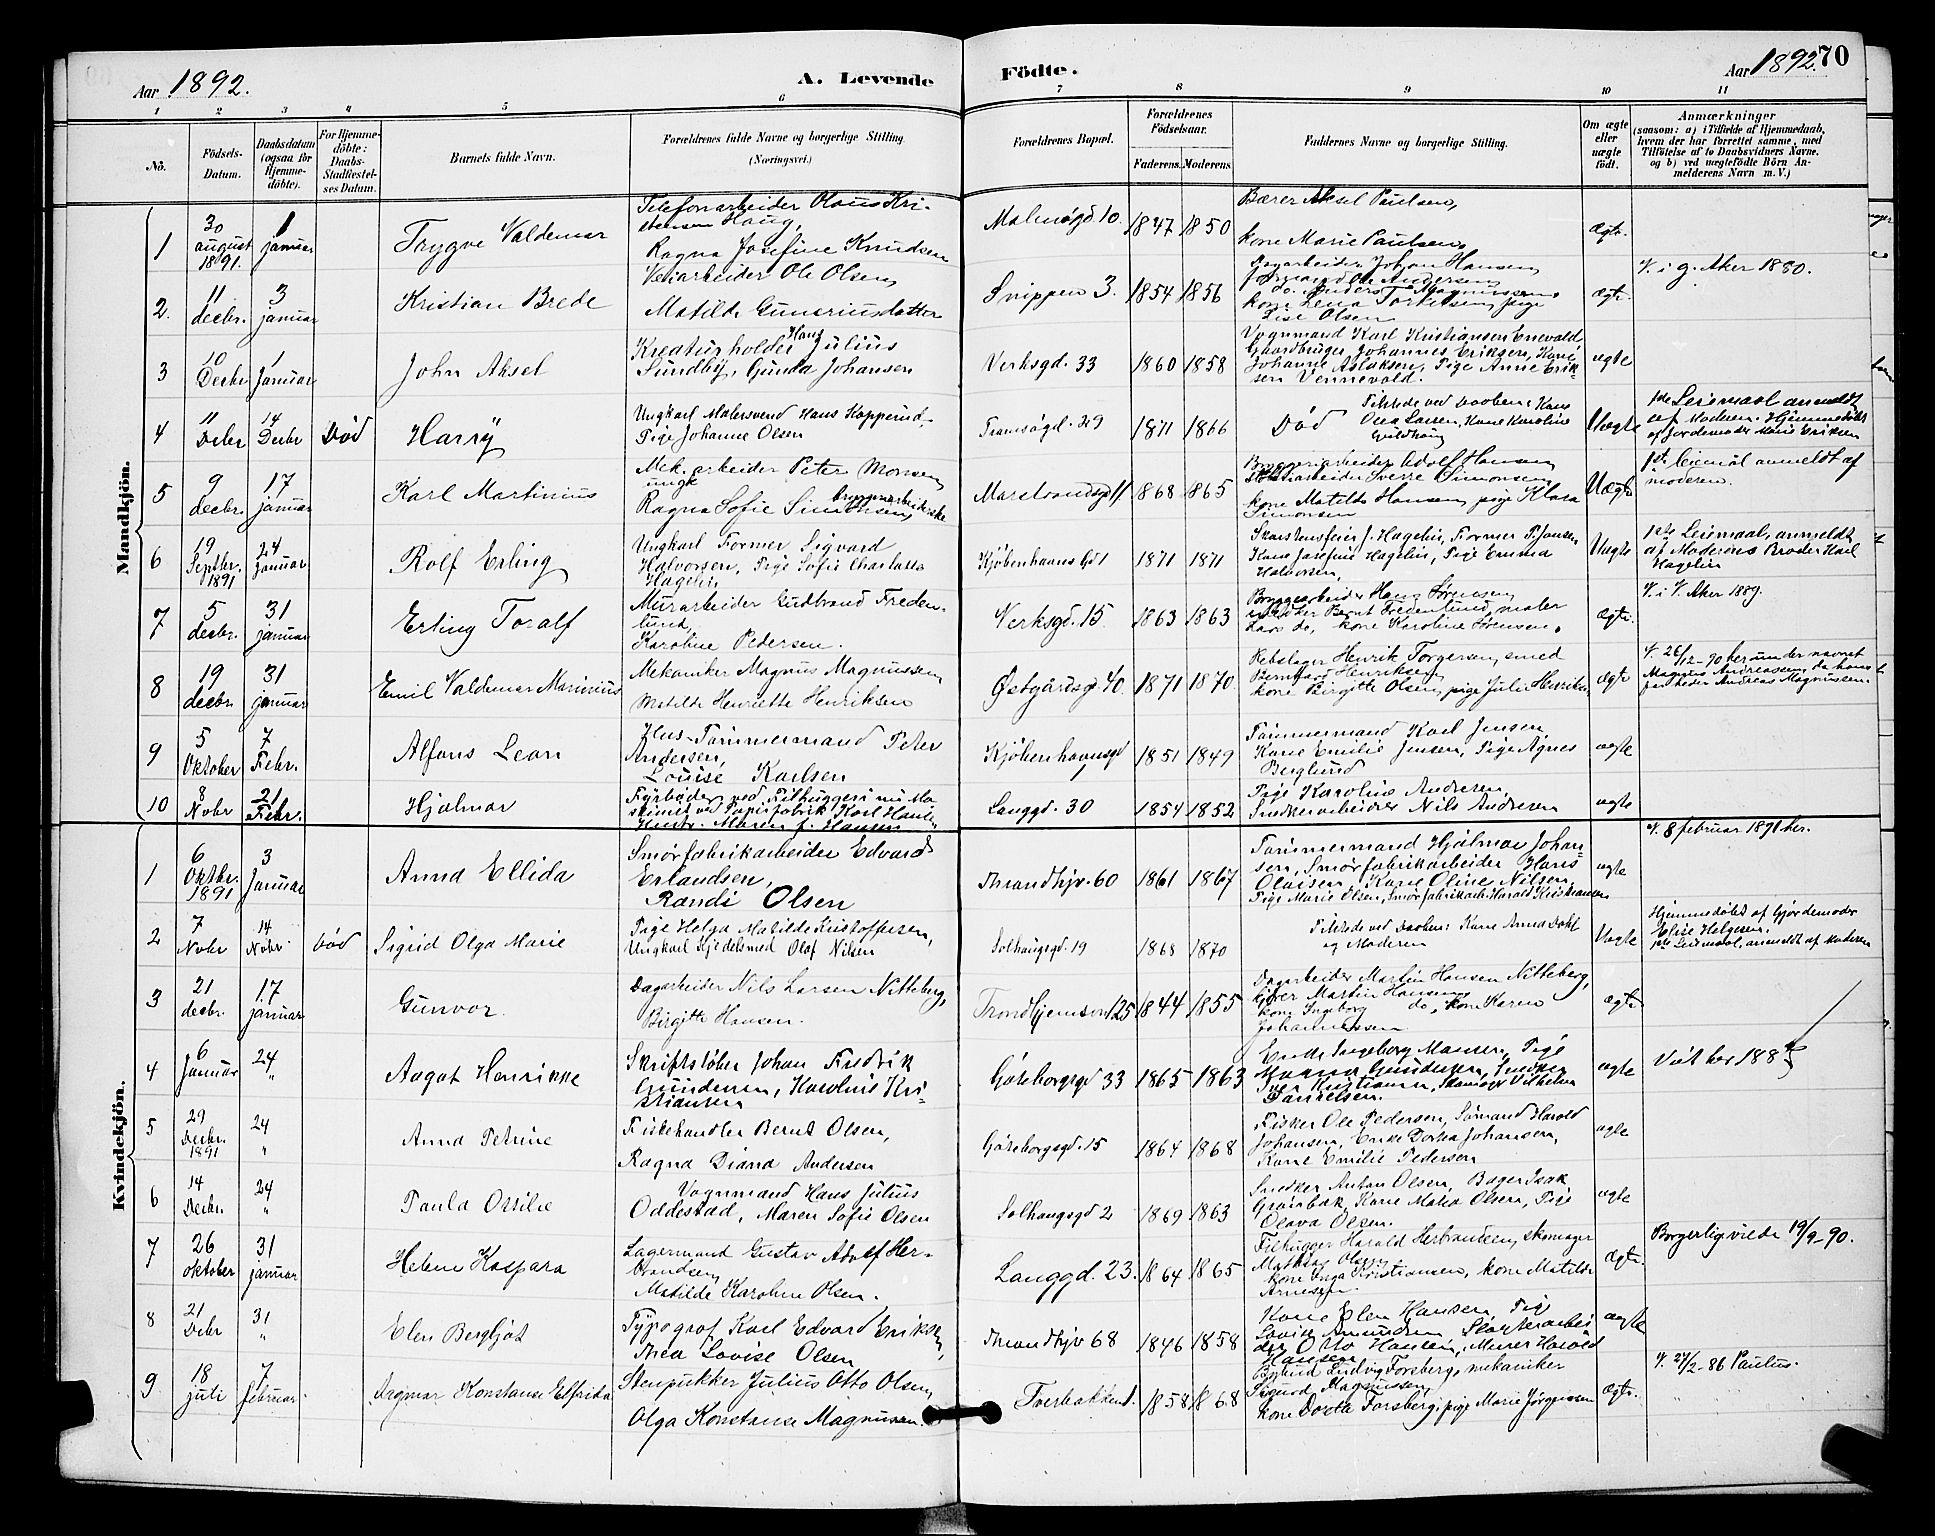 Aar 1892.
A. Levende
Födte.
Aar 1892.
70
1 2 3 4 5 6 7 8 9 10 11
No.
Födsels-
Datum.
Daabsdatum
(ogsaa for
Hjemme-
döbte).
For Hjemme-
döbte:
Daabs-
Stadfæstel-
ses Datum.
Barnets fulde Navn.
Forældrenes fulde Navne og borgerlige Stilling.
(Næringsvei.)
Forældrenes Bopæl.
Forældrenes
Födselsaar.
Faderens. Moderens.
Faddernes Navne og borgerlige Stilling.
Om ægte
eller
uægte
födt.
Anmærkninger
(saasom: a) i Tilfælde af Hjemmedaab,
hvem der har forrettet samme, med
Tilföielse af to Daabsvidners Navne.
og b) ved uægtefödte Börn An-
melderens Navn m. V.)
Mandkjön.
1
30
august
1891.
1
januar
Trygve Valdemar
Telefonarbeider Olaus Kri-
stensen Haug,
Ragna Josefine Knudsen
Malmøgd 10.
1847 1850
Bærer Aksel Paulsen,
kone Marie Paulsen,
ægte.
2.
11
decbr.
3
januar
Kristian Brede
Veiarbeider Ole Olsen,
Matilde Gunariusdatter
Svippen 3.
1854 1856
Dagarbeider Johan Hansen,
kone Lena Torkilsen, pige
Lise Olsen
ægte.
V. i g. Aker 1880.
3
10
Decbr
1
Januar
John Aksel
Kreaturholder Hans Julius
Sundby, Gunda Johansen
Verksgd. 33
1860 1858
Vognmand Karl Kristiansen Enevald
Gaardbruger Johannes Eriksen, Kone
Johanne Aslaksen, Pige Anne Erik-
sen Vennevold.
ægte
4
11
Debr
14
Debr
Død
Harry
Ungkarl Malersvend Hans Kopperud,
Pige Johanne Olsen
Tromsøgd. 29
1871 1866
Død
Tilstede ved Daaben: Kone
Olea Larsen, Kone Karoline
Guldhaug
Uægte
1ste Leiemaal anmeldt
af Moderen. Hjemmedøbt
af Jordemoder Marie Eriksen
5
9
decbr.
17
januar
Karl Martinius
Mek. arbeider Peter Monsen,
ungk
Ragna Sofie Simonsen,
Marstrandsgd 11
1868 1865
Bryggeriarbeider Adolf Hansen
kone Matilde Hansen, pige Klara
Simonsen
Uægte
1ste leiemål anmeldt af
moderen.
6
19
Septbr.
1891
24
Januar
Rolf Erling
Ungkarl Former Sigvard
Halvorsen, Pige Sofie Charlotta
Hagelin
Kjøbenhavns Gd 1
1871 1871
Skorstensfeier J. Hagelin, Former P. Jansen
Kone Josefine Hagelin, Pige Emma
Halvorsen,
Uægte
1ste Leiemaal, anmeldt
af Moderens Broder Karl
Hagelin
7
5
decbr.
31
januar
Erling Toralf
Murarbeider Gudbrand Freden-
lund,
Karoline Pedersen.
Verksgd. 15.
1863 1863
Bryggearbeider Hans Sørensen,
Bernt Fredenlund, maler
Lars do, kone Karoline Sørensen.
Ægte.
V. i V. Aker 1889.
8
19
decbr.
31
januar
Emil Valdemar Marinius
Mekaniker Magnus Magnussen,
Matilde Henriette Henriksen
Østgårdsgd 40.
1871 1870.
Rebslager Henrik Torgersen, smed
Bernhard Henriksen,
kone Birgitte Olsen, pige Julie Henriksen
ægte
V. 26/12-90 her under navnet
Magnus Andreassen, da hans
far heder Andreas Magnussen
9
5
Oktober
7
Febr.
Alfons Leon
Hus-Tømmermand Peter
Andersen,
Louise Karlsen
Kjøbenhavnsgd
1851 1849
Tømmermand Karl Jensen
Kone Emilie Jensen, Pige Agnes
Berglund
ægte
10
8
Nobr
21
Febr.
Hjalmar
Fyrbøder ved Filhuggeri nu Ma-
skinist ved Papirfabrik Karl Hansen
Langgd. 30
1854 1852
Pige Karoline Andresen
Snedkerarbeider Nils Andresen
ægte
Kvindekjön.
1
6
Oktbr.
1891
3
Januar
Anna Ellida
Smörfabrikarbeider Edvard
Erlandsen,
Randi Olsen
Thrandhjv. 60
1861 1867
Tømmermand Hjalmar Johan-
sen, Smørfabrikarbeider Hans
Olaisen, Kone Oline Nilsen,
Pige Marie Olsen, Smörfabrikarb. Harald Kristiansen
ægte
V. 8 februar 1891 her.
2
7
Nobr
14
Nobr.
Død
Sigrid Olga Marie
Pige Helga Matilde Kristoffersen,
Ungkarl Kjedelsmed Olaf Nilsen
Solhaugsgd. 19
1868 1870
Tilstede ved Daaben: Kone Anna Dahl
og Moderen
Uægte
Hjemmedøbt af Gjordemoder
Elise Helgesen,
1ste Leiemaal, anmeldt af Moderen
3
21
decbr.
17
januar
Gunvor.
Dagarbeider Nils Larsen Nitteberg,
Birgitte Hansen.
Trondhjemsvd 25
1844 1855
Dagarbeider Martin Hansen Nitteberg,
Martin Hansen
kone Ingeborg do, kone Karen
Johannessen
ægte
4
6
Januar
24
"
Aagot Henrikke
Skriftstøber Johan Fredrik
Gundersen, Karoline Kri-
stiansen
Göteborgsgd 33
1865 1863
Enke Ingeborg Monsen, Pige
Hanna Gundersen, Snedker
Sven Kristiansen, Skomager Vilhelm
Danielsen.
ægte
Viet her 188
5
29
Decbr.
1891
24
"
Anna Petrine
Fiskehandler Bernt Olsen,
Ragna Diana Andersen
Göteborgsgd. 15
1864 1868
Fisker Ole Pedersen, Sømand Harald
Johansen, Enke Dorka Johansen,
Kone Emilie Pedersen
ægte
6
14
Decbr.
24
"
Paula Ottilie
Vognmand Hans Julius
Oddestad, Maren Sofie Olsen
Solhaugsgd 2
1869 1863
Snedker Anton Olsen, Bager Isak
Grönbæk, Kone Maka Olsen, Pige
Olava Olsen.
ægte
7
26
oktober
31
januar
Helene Kaspara
Lagermand Gustav Adolf Her-
brandsen,
Matilde Karoline Olsen.
Langgd. 23.
1864 1865
Filhugger Harald Herbrandsen, skomager
Mathias Olsen,
kone Inga Kristiansen, kone Matilde
Arnesen.
Ægte.
Borgerlig viede 19/9-90.
8
21
Debr
31
"
Elen Bergljot
Typograf Karl Edvard Eriksen,
Thea Lovise Olsen
Thrandhjv 68
1846 1858
Kone Elen Hansen, Pige
Lovise Amundsen, Slagterarbei-
der Otto Hansen, Murer Harald
Hansen
ægte
9
18
juli
7
februar
Dagmar Konstanse Elfrida
Stenpukker Julius Otto Olsen,
Olga Konstanse Magnussen.
Tverbakken 1.
1858 1868
Ludvig Forsberg, mekaniker
Sigurd Magnussen,
kone Dorta Forsberg, pige Marie Jörgensen
Ægte.
V. 27/2-86 Paulus.